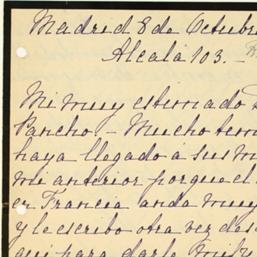 Madrid 8 de Octubre
Alcalá 103.-
Mi muy estimado
Pancho - Mucho tem
haya llegado á sus m
mi anterior porque el
en Francia anda muy
y le escribo otra vez des
qui para darle